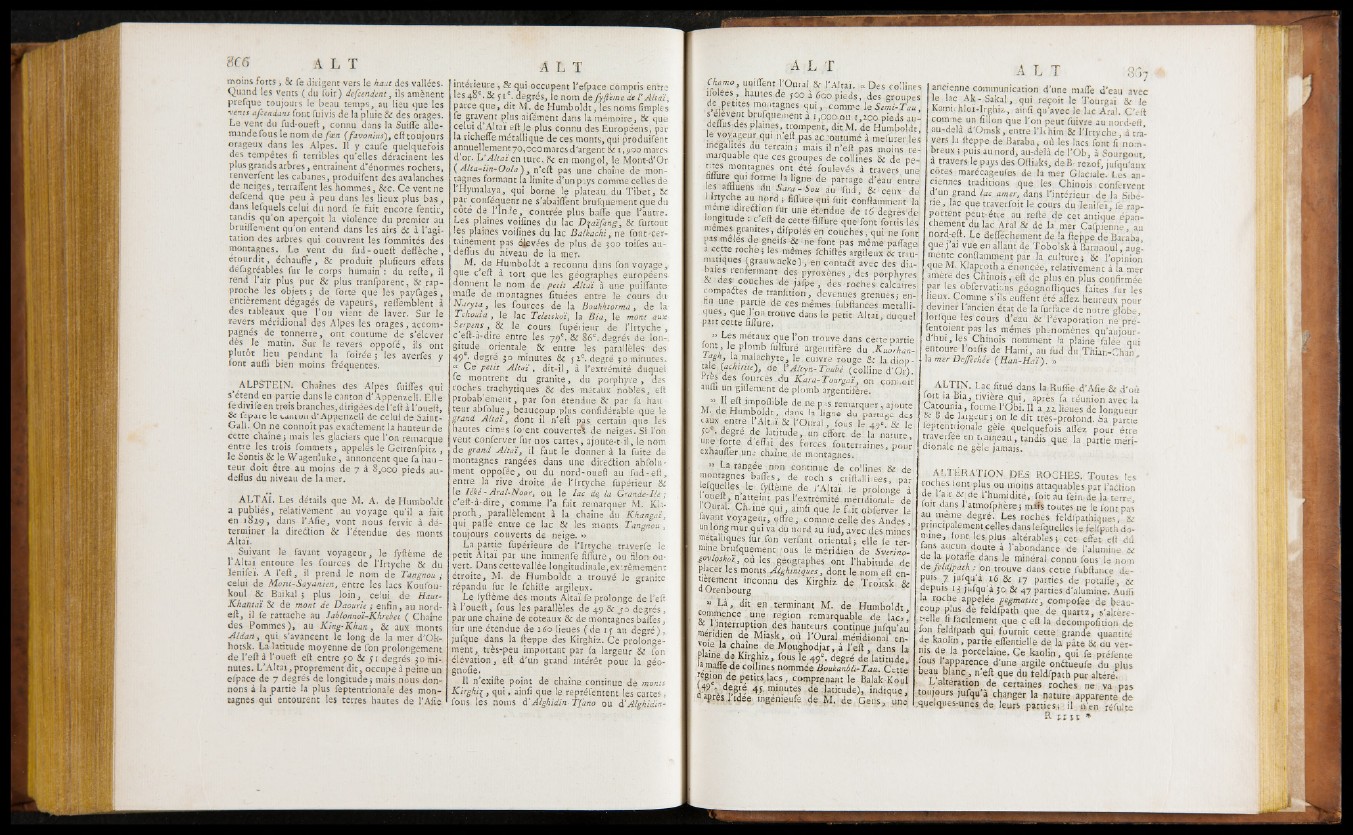 866 A L T
moins forts, & se dirigent vers le haut des vallées.
Quand les vents (du soir) descendent, ils amènent
presque toujours le beau temps, au lieu que les
vents ascendans sont suivis de la pluie & des orages.
Le vent du sud-ouest, connu dans la Suisse alle-
mande sous le nom de fæn (favonius), est toujours
orageux dans les Alpes. Il y cause quelquefois
des tempêtes si terribles qu'elles déracinent les
plus grands arbres, entraînent d'énormes rochers,
renversent les cabanes, produisent des avalanches
de neiges, terrassent les hommes, &c. Ce vent ne
descend que peu à peu dans les lieux plus bas,
dans lesquels celui du nord se fait encore sentir,
tandis qu'on aperçoit la violence du premier au
bruissement qu'on entend dans les airs & à l'agi-
tation des arbres qui couvrent les sommités des
montagnes. Le vent du sud-ouest dessèche,
étourdit, échauffe, & produit plusieurs effets
désagréables sur le corps humain : du reste, il
rend l'air plus pur & plus transparent, & rap-
proche les objets; de sorte que les paysages,
entièrement dégagés de vapeurs, ressemblent à
des tableaux que l'on vient de laver. Sur le
revers méridional des Alpes les orages, accom-
pagnés de tonnerre, ont coutume de s'élever
dès le matin. Sur le revers opposé, ils ont
plutôt lieu pendant la soirée; les averses y
sont aussi bien moins fréquentes.
ALPSTEIN. Chaînes des Alpes suisses qui
s'étend en partie dans le canton d'Appenzell. Elle
se divise en trois branches, dirigées de l'est à l'ouest,
& sépare le canton d'Appenzell de celui de Saint-
Gall. On ne connoît pas exactement la hauteur de
cette chaîne; mais les glaciers que l'on remarque
entre les trois sommets, appelés le Geirenspitz,
le Sontis & le Wagenluke, annoncent que sa hau-
teur doit être au moins de 7 à 8,000 pieds au-
dessus du niveau de la mer.
ALTAÏ. Les détails que M. A. de Humboldt
a publiés, relativement au voyage qu'il a fait
en 1829, dans l'Asie, vont nous servir à dé-
terminer la direction & l'étendue des monts
Altaï.
Suivant le savant voyageur, le système de
l'Altaï entoure les sources de l'Irtyche & du
Ienisei. A l'est, il prend le nom de Tangnou;
celui de Mont-Sayanien, entre les lacs Kousou-
koul & Baikal; plus loin, celui de Haut-
Khantaï & de mont de Daourie; enfin, au nord-
est, il se rattache au Jablonnoï-Khrebet (Chaîne
des Pommes), au King-Khan, & aux monts
Aldan, qui s'avancent le long de la mer d'Ok-
hotsk. La latitude moyenne de son prolongement
de l'est à l'ouest est entre 50 & 51 degrés 30 mi-
nutes. L'Altaï, proprement dit, occupe à peine un
espace de 7 degrés de longitude; mais nous don-
nons à la partie la plus septentrionale des mon-
tagnes qui entourent les terres hautes de l'Asie
A L T
intérieure, & qui occupent l'espace compris entre
les 48e. & 51e. degrés, le nom de système de l'Altaï,
parce que, dit M. de Humboldt, les noms simples
se gravent plus aisément dans la mémoire, & que
celui d'Altaï est le plus connu des Européens, par
la richesse métallique de ces monts, qui produisent
annuellement 70,000 marcs d'argent & 1,900 marcs
d'or. L'Altaï en turc, & en mongol, le Mont-d'Or
(Alta-iin-Oola), n'est pas une chaîne de mon-
tagnes formant la limite d'un pays comme celles de
l'Hymalaya, qui borne le plateau du Tibet, &
par conséquent ne s'abaissent brusquement que du
côté de l'Inde, contrée plus basse que l'autre.
Les plaines voisines du lac Dzaïsang, & surtout
les plaines voisines du lac Balkachi, ne sont cer-
tainement pas élevées de plus de 300 toises au-
dessus du niveau de la mer.
M. de Humboldt a reconnu dans son voyage,
que c'est à tort que les géographes européens
donnent le nom de petit Altaï à une puissante
masse de montagnes situées entre le cours du
Naryta, les sources de la Boukhtorma, de la
Tchouïa, le lac Teletskoï, la Bia, le mont aux
Serpens, & le cours supérieur de l'Irtyche,
c'est-à-dire entre les 79e. & 86e. degrés de lon-
gitude orientale & entre les parallèles des
49e. degré 30 minutes & 52e. degré 30 minutes.
« Ce petit Altaï, dit-il, à l'extrémité duquel
se montrent du granite, du porphyre, des
roches trachytiques & des métaux nobles, est
probablement, par son étendue & par sa hau-
teur absolue, beaucoup plus considérable que le
grand Altaï, dont il n'est pas certain que les
hautes cimes soient couvertes de neiges. Si l'on
veut conserver sur nos cartes, ajoute-t-il, le nom
de grand Altaï, il faut le donner à la suite de
montagnes rangées dans une direction absolu-
ment opposée, ou du nord-ouest au sud-est,
entre la rive droite de l'Irtyche supérieur &
le Iéké-Aral-Noor, ou le lac de la Grande-Ile;
c'est-à-dire, comme l'a fait remarquer M. Kla-
proth, parallèlement à la chaîne du Khangaï,
qui passe entre ce lac & les monts Tangnou,
toujours couverts de neige. »
La partie supérieure de l'Irtyche traverse le
petit Altaï par une immense fissure, ou filon ou-
vert. Dans cette vallée longitudinale, extrêmement
étroite, M. de Humboldt a trouvé le granite
répandu sur le schiste argileux.
Le système des monts Altaï se prolonge de l'est
à l'ouest, sous les parallèles de 49 & 50 degrés,
par une chaîne de coteaux & de montagnes basses,
sur une étendue de 160 lieues (de 15 au degré),
jusque dans la steppe des Kirghiz. Ce prolonge-
ment, très-peu important par sa largeur & son
élévation, est d'un grand intérêt pour la géo-
gnosie.
Il n'existe point de chaîne continue de monts
Kirghiz, qui, ainsi que le représentent les cartes,
sous les noms d'Alghidin Tsano ou d'Alghidin-
A L T
Chamo, unissent l'Oural & l'Altaï. « Des collines
isolées, hautes de 500 à 600 pieds, des groupes
de petites montagnes qui, comme le Semi-Tau,
s'élèvent brusquement à 1,000 ou 1,200 pieds au-
dessus des plaines, trompent, dit M. de Humboldt,
le voyageur qui n'est pas accoutumé à mesurer les
inégalités du terrain; mais il n'est pas moins re-
marquable que ces groupes de collines & de pe-
tites montagnes ont été soulevés à travers une
fissure qui forme la ligne de partage d'eau entre
les affluens du Sara-Sou au sud, & ceux de
l'Irtyche au nord; fissure qui suit constamment la
même direction sur une étendue de 16 degrés de
longitude : c'est de cette fissure que sont sortis les
mêmes granites, disposés en couches, qui ne sont
pas mêlés de gneiss & ne font pas même passage
à cette roche; les mêmes schistes argileux & trau-
matiques (grauwacke), en contact avec des dia-
bases renfermant des pyroxènes, des porphyres
& des couches de jaspe, des roches calcaires
compactes de transition, devenues grenues; en-
fin une partie de ces mêmes substances métalli-
ques, que l'on trouve dans le petit Altaï, duquel
part cette fissure.
» Les métaux que l'on trouve dans cette partie
sont, le plomb sulfuré argentifère du Kourhan-
Tagh, la malachyte, le cuivre rouge & la diop-
tale (achirite), de l'Altyn-Toubé (colline d'Or).
Près des sources du Kara-Tourgaï, on connoît
aussi un gissement de plomb argentifère.
» Il est impossible de ne pas remarquer, ajoute
M. de Humboldt, dans la ligne du partage des
eaux entre l'Altaï & l'Oural, sous le 49e. & le
50e. degré de latitude, un effort de la nature,
une sorte d'essai des forces souterraines, pour
exhausser une chaîne de montagnes.
» La rangée non continue de collines & de
montagnes basses, de rochers cristallisées, par
lesquelles le système de l'Altaï se prolonge à
l'ouest, n'atteint pas l'extrémité méridionale de
l'Oural. Chaîne qui, ainsi que le fait observer le
savant voyageur, offre, comme celle des Andes,
un long mur qui va du nord au sud, avec des mines
métalliques sur son versant oriental; elle se ter-
mine brusquement sous le méridien de Sverino-
govloskoï, où les géographes ont l'habitude de
placer les monts Alghiniques, dont le nom est en-
tièrement inconnu des Kirghiz de Troïtsk &
d'Orenbourg
» Là, dit en terminant M. de Humboldt,
commence une région remarquable de lacs,
& l'interruption des hauteurs continue jusqu'au
méridien de Miask, où l'Oural méridional en-
voie la chaîne de Moughodjar, à l'est, dans la
plaine de Kirghiz, sous le 49e. degré de latitude,
la masse de collines nommée Boukanbli-Tau. Cette
région de petits lacs, comprenant le Balak-Koul
(49e. degré 45 minutes de latitude), indique,
d'après l'idée ingénieuse de M. de Gens, une
A L T 867
ancienne communication d'une masse d'eau avec
le lac Ak-Sakal, qui reçoit le Tourgaï & le
Kamichloï-Irghiz, ainsi qu'avec le lac Aral. C'est
comme un sillon que l'on peut suivre au nord-est,
au-delà d'Omsk, entre l'Ichim & l'Irtyche, à tra-
vers la steppe de Baraba, où les lacs sont si nom-
breux; puis au nord, au-delà de l'Ob, à Sourgout,
à travers le pays des Ostiaks, de Berezof, jusqu'aux
côtes marécageuses de la mer Glaciale. Les an-
ciennes traditions que les Chinois conservent
d'un grand lac amer, dans l'intérieur de la Sibé-
rie, lac que traversoit le cours du Ienisei, se rap-
portent peut-être au reste de cet antique épan-
chement du lac Aral & de la mer Caspienne, au
nord-est. Le dessèchement de la steppe de Baraba,
que j'ai vue en allant de Tobolsk à Barnaoul, aug-
mente constamment par la culture; & l'opinion
que M. Klaproth a énoncée, relativement à la mer
amère des Chinois, est de plus en plus confirmée
par les observations géognostiques faites sur les
lieux. Comme s'ils eussent été assez heureux pour
deviner l'ancien état de la surface de notre globe,
lorsque les cours d'eau & l'évaporation ne pré-
sentoient pas les mêmes phénomènes qu'aujour-
d'hui, les Chinois nomment la plaine salée qui
entoure l'oasis de Hami, au sud du Thian-Chan,
la mer Desséchée (Han-Haï). »
ALTIN. Lac situé dans la Russie d'Asie & d'où
sort la Bia, rivière qui, après sa réunion avec la
Catounia, forme l'Obi. Il a 22 lieues de longueur
& 8 de largeur; on le dit très-profond. Sa partie
septentrionale gèle quelquefois assez pour être
traversée en traîneau, tandis que la partie méri-
dionale ne gèle jamais.
ALTÉRATION DES ROCHES. Toutes les
roches sont plus ou moins attaquables par l'action
de l'air & de l'humidité, soit au sein de la terre,
soit dans l'atmosphère; mais toutes ne le sont pas
au même degré. Les roches feldspathiques, &
principalement celles dans lesquelles le felspath do-
mine, sont les plus altérables; cet effet est dû
sans aucun doute à l'abondance de l'alumine &
de la potasse dans le minéral connu sous le nom
de feldspath : on trouve dans cette substance de-
puis 7 jusqu'à 16 & 17 parties de potasse, &
depuis 15 jusqu'à 30 & 47 parties d'alumine. Aussi
la roche appelée pegmatite, composée de beau-
coup plus de feldspath que de quartz, s'altère-
t-elle si facilement que c'est la décomposition de
son feldspath qui fournit cette grande quantité
de kaolin, partie essentielle de la pâte & du ver-
nis de la porcelaine. Ce kaolin, qui se présente
sous l'apparence d'une argile onctueuse du plus
beau blanc, n'est que du feldspath pur altéré.
L'altération de certaines roches ne va pas
toujours jusqu'à changer la nature apparente de
quelques-unes de leurs parties; il n'en résulte
R rrrr *